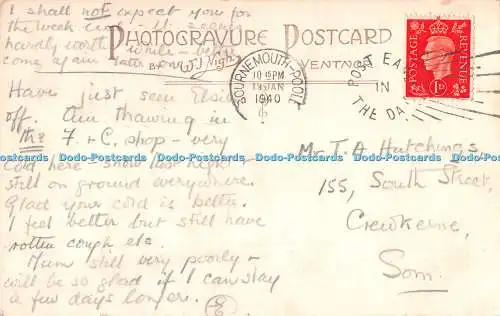 I shall not expect you for
the week end – it seems
hardly worth while – better
come again later on
PHOTOGRAVURE POSTCARD
BY W.J. Nigh
VENTNOR
BOURNEMOUTH-POOLE
10 15PM
JAN
1940
POST EA
IN
THE DA
POSTAGE
REVENUE
1D
Have just seen Elsie
off. Am thawing in
the F. & C. shop – very
cold here – snow last night –
still on ground everywhere.
Glad your cold is better.
I feel better but still have
rotten cough etc.
Mum still very poorly –
will be so glad if I can stay
a few days longer.
E
Mr T. A Hutchings,
155, South Street,
Crewkerne,
Som.
Dodo-Postcards Dodo-Postcards Dodo-Postcards Dodo-Postcards Dodo-Postcards Dodo-Postcards Dodo-Postcards